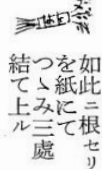 如此ニ根セリ
を紙にて
つゝみ三處
結て上ル